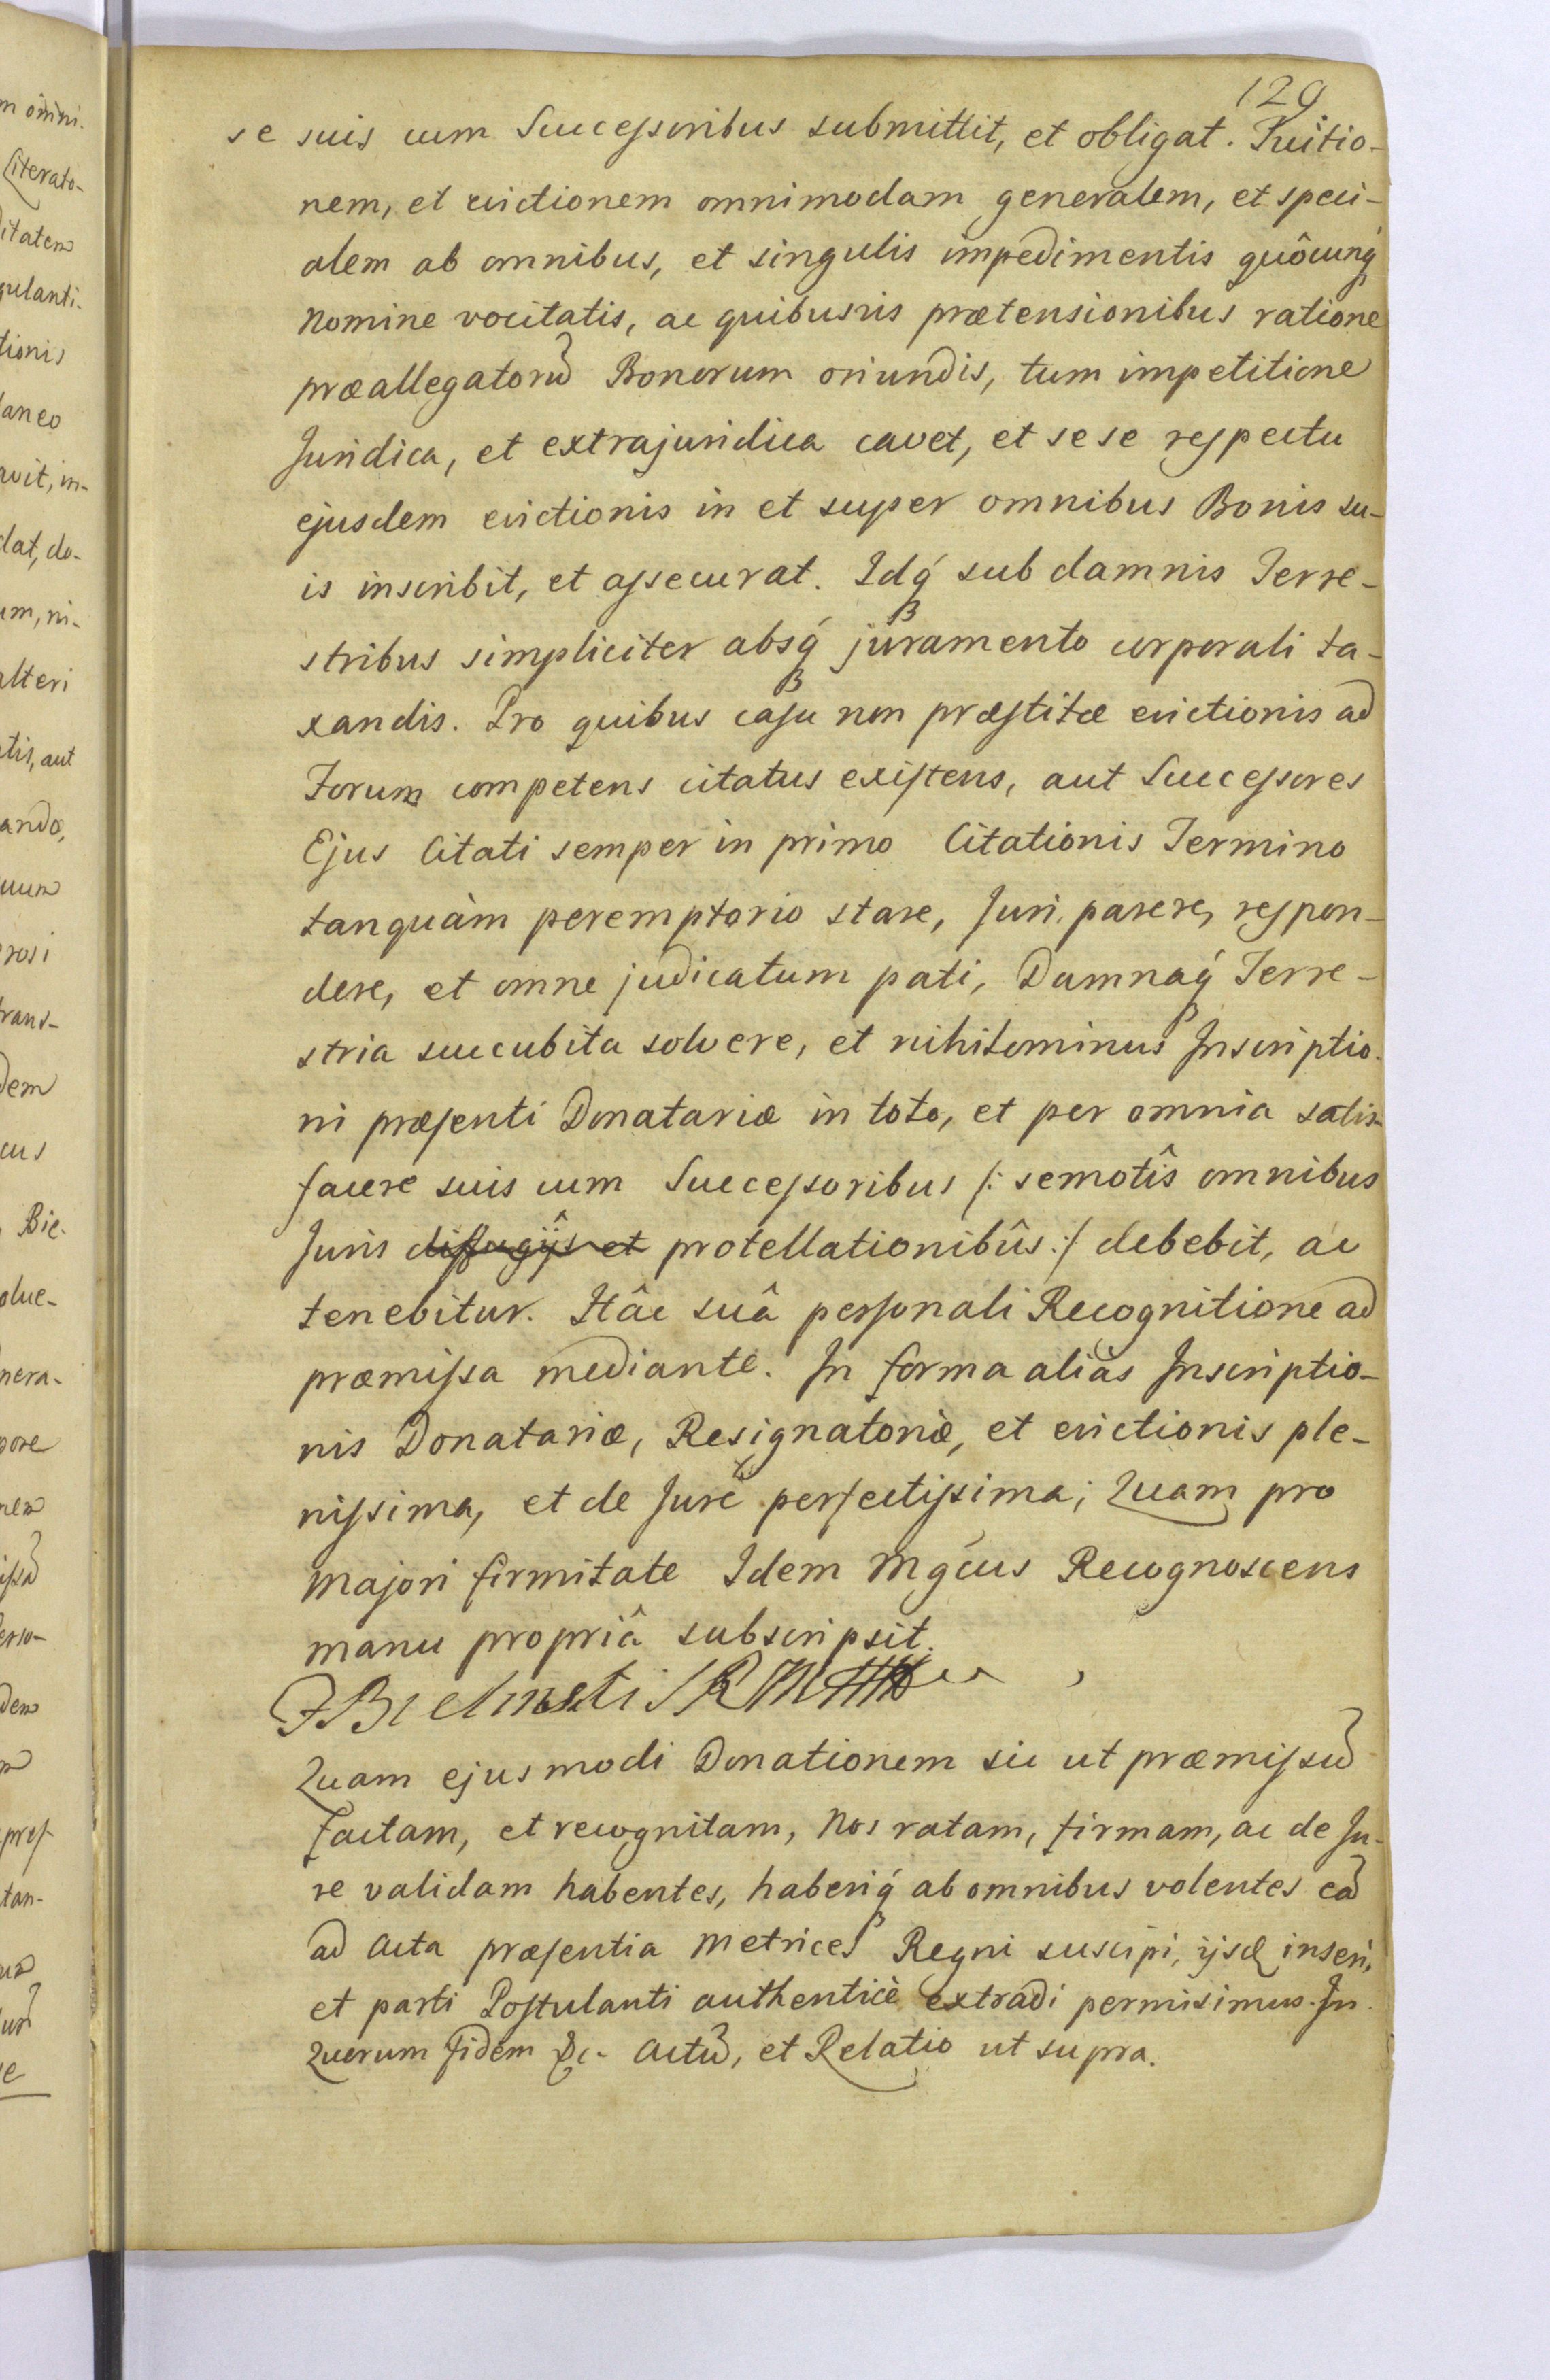 129
se suis cum Successoribus submittit, et obligat. Tuitio-
nem, et evictionem omnimodam generalem, et speci-
alem ab omnibus, et singulis impedimentis quôcunq́
Nomine vocitatis, ac quibusvis prætensionibus ratione
præallegatorū Bonorum oriundis, tum impetitione
Juridica, et extrajuridica cavet, et sese respectu
ejusdem evictionis in et super omnibus Bonis su-
is inscribit, et assecurat. Idq́ sub damnis Terre-
stribus simpliciter absq́ juramento corporali ta-
xandis. Pro quibus casu non præstitæ evictionis ad
Forum competens citatus existens, aut Successores
Ejus Citati semper in primo Citationis Termino
tanquàm peremptorio stare, Juri parere, respon-
dere, et omne judicatum pati, Damnaq́ Terre-
stria succubita solvere, et nihilominus Inscriptio-
ni præsenti Donatariæ in toto, et per omnia satis-
facere suis cum Successoribus /: semotîs omnibus
Juris diffugijs et protellationibûs :/ debebit, ac
tenebitur. Hâc suâ personali Recognitione ad
præmissa mediante. In forma aliàs Inscriptio-
nis Donatariæ, Resignatoriæ, et evictionis ple-
nissima, et de Jure perfectissima; Quam pro
majori firmitate Idem Mgćus Recognoscens
manu propriâ subscripsit.
Quam ejusmodi Donationem sic ut præmissū
factam, et recognitam, Nos ratam, firmam, ac de Ju-
re validam habentes, haberiq́ ab omnibus volentes eā
ad Acta præsentia Metrices Regni suscipi, ijsq́ inseri,
et parti Postulanti authenticè extradi permisimus. In
Quorum fidem &c- Actū, et Relatio ut supra.